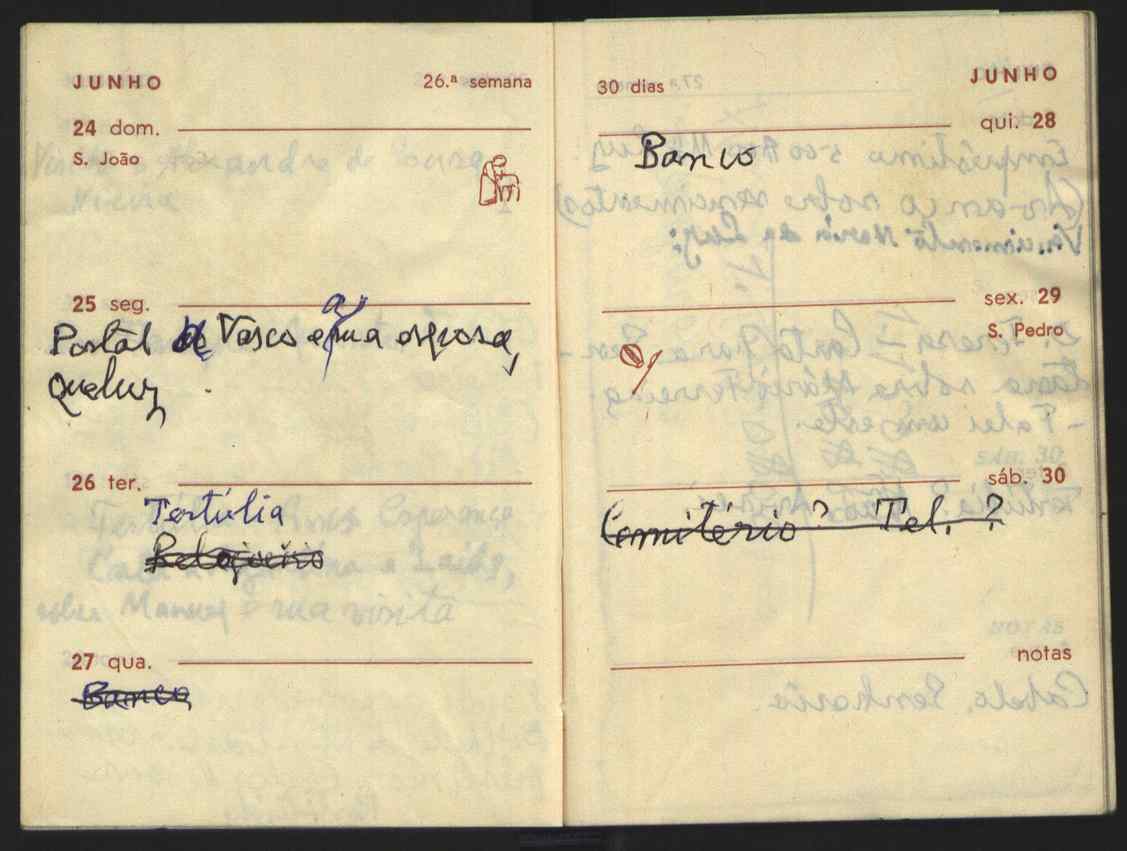 JUNHO 26.ª semana
24 dom.
S. João
25 seg.
Postal de Vasco e sua esposa,
Queluz
26 ter.
Tertúlia
Relojoeiro
27 qua.
Banco
30 dias JUNHO
qui. 28
Banco
sex. 29
S. Pedro
sáb. 30
Cemitério? Tel. ?
notas